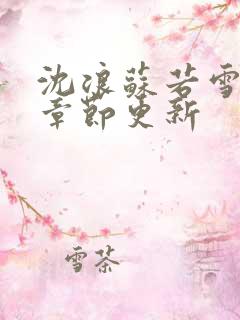 沈浪蘇若雪
章節更新
雪茶